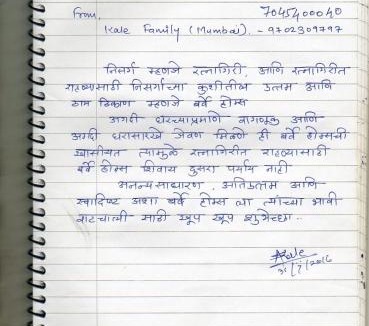 From, 7045400040
Kale Family (Mumbai). - 9702309797
निसर्ग म्हणजे रत्नागिरी, आणि रत्नागिरीत
राहण्यासाठी निसर्गाच्या कुशीतील उत्तम आणि
ठिकाण म्हणजे बर्वे होम्स
अगदी घरच्याप्रमाणे वागणूक आणि
अगदी घरासारखे जेवण मिळणे ही बर्वे होम्सची
खासीयत त्यामुळे रत्नागिरीत राहण्यासाठी
बर्वे होम्स शिवाय दुसरा पर्याय नाही
अनन्यसाधारण, अतिउत्तम आणि
स्वादिष्ट अशा बर्वे होम्स ला त्यांच्या भावी
वाटचाली साठी खूप खूप शुभेच्छा..
Kale